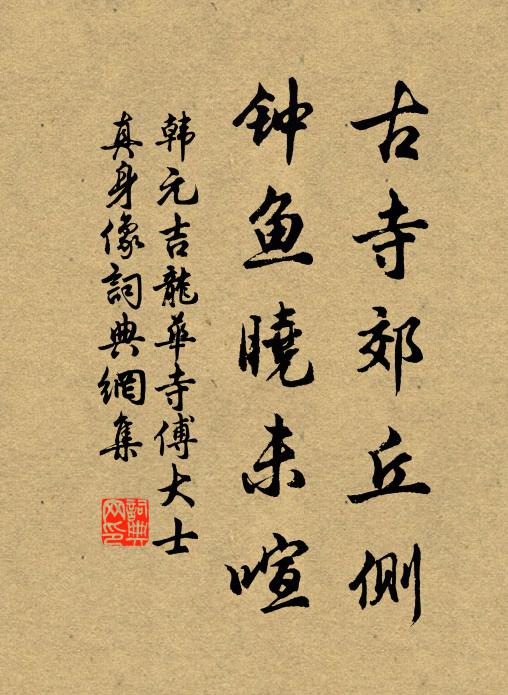 古寺郊丘侧
钟鱼曉未喧
韩元吉龍華寺傅大士
真身像詞典網集
詞典网印